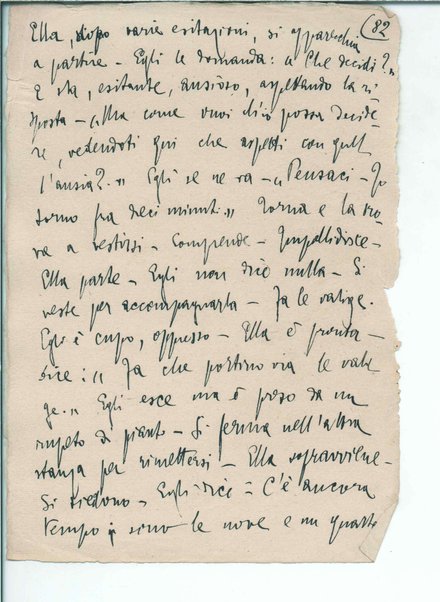 (82
Ella, dopo varie esitazioni, si apparecchia
a partire - Egli le domanda: « Che decidi?»
E sta, esitante, ansioso, aspettando la ri-
sposta - « Ma come vuoi ch'io possa decide-
re, vedendoti qui che aspetti con quel-
l'ansia?.» Egli se ne va - « Pensaci - Io
torno fra dieci minuti.» Torna e la tro-
va a vestirsi - Comprende - Impallidisce -
Ella parte - Egli non dice nulla - Si
veste per accompagnarla - Fa le valige.
Egli è cupo, oppresso - Ella è pronta -
dice: « Fa che portino via le vali-
ge.» Egli esce ma è preso da un
impeto di pianto - Si ferma nell'altra
stanza per rimettersi - Ella sopravviene -
Si siedono - Egli dice = C'è ancora
tempo: sono le nove e un quarto